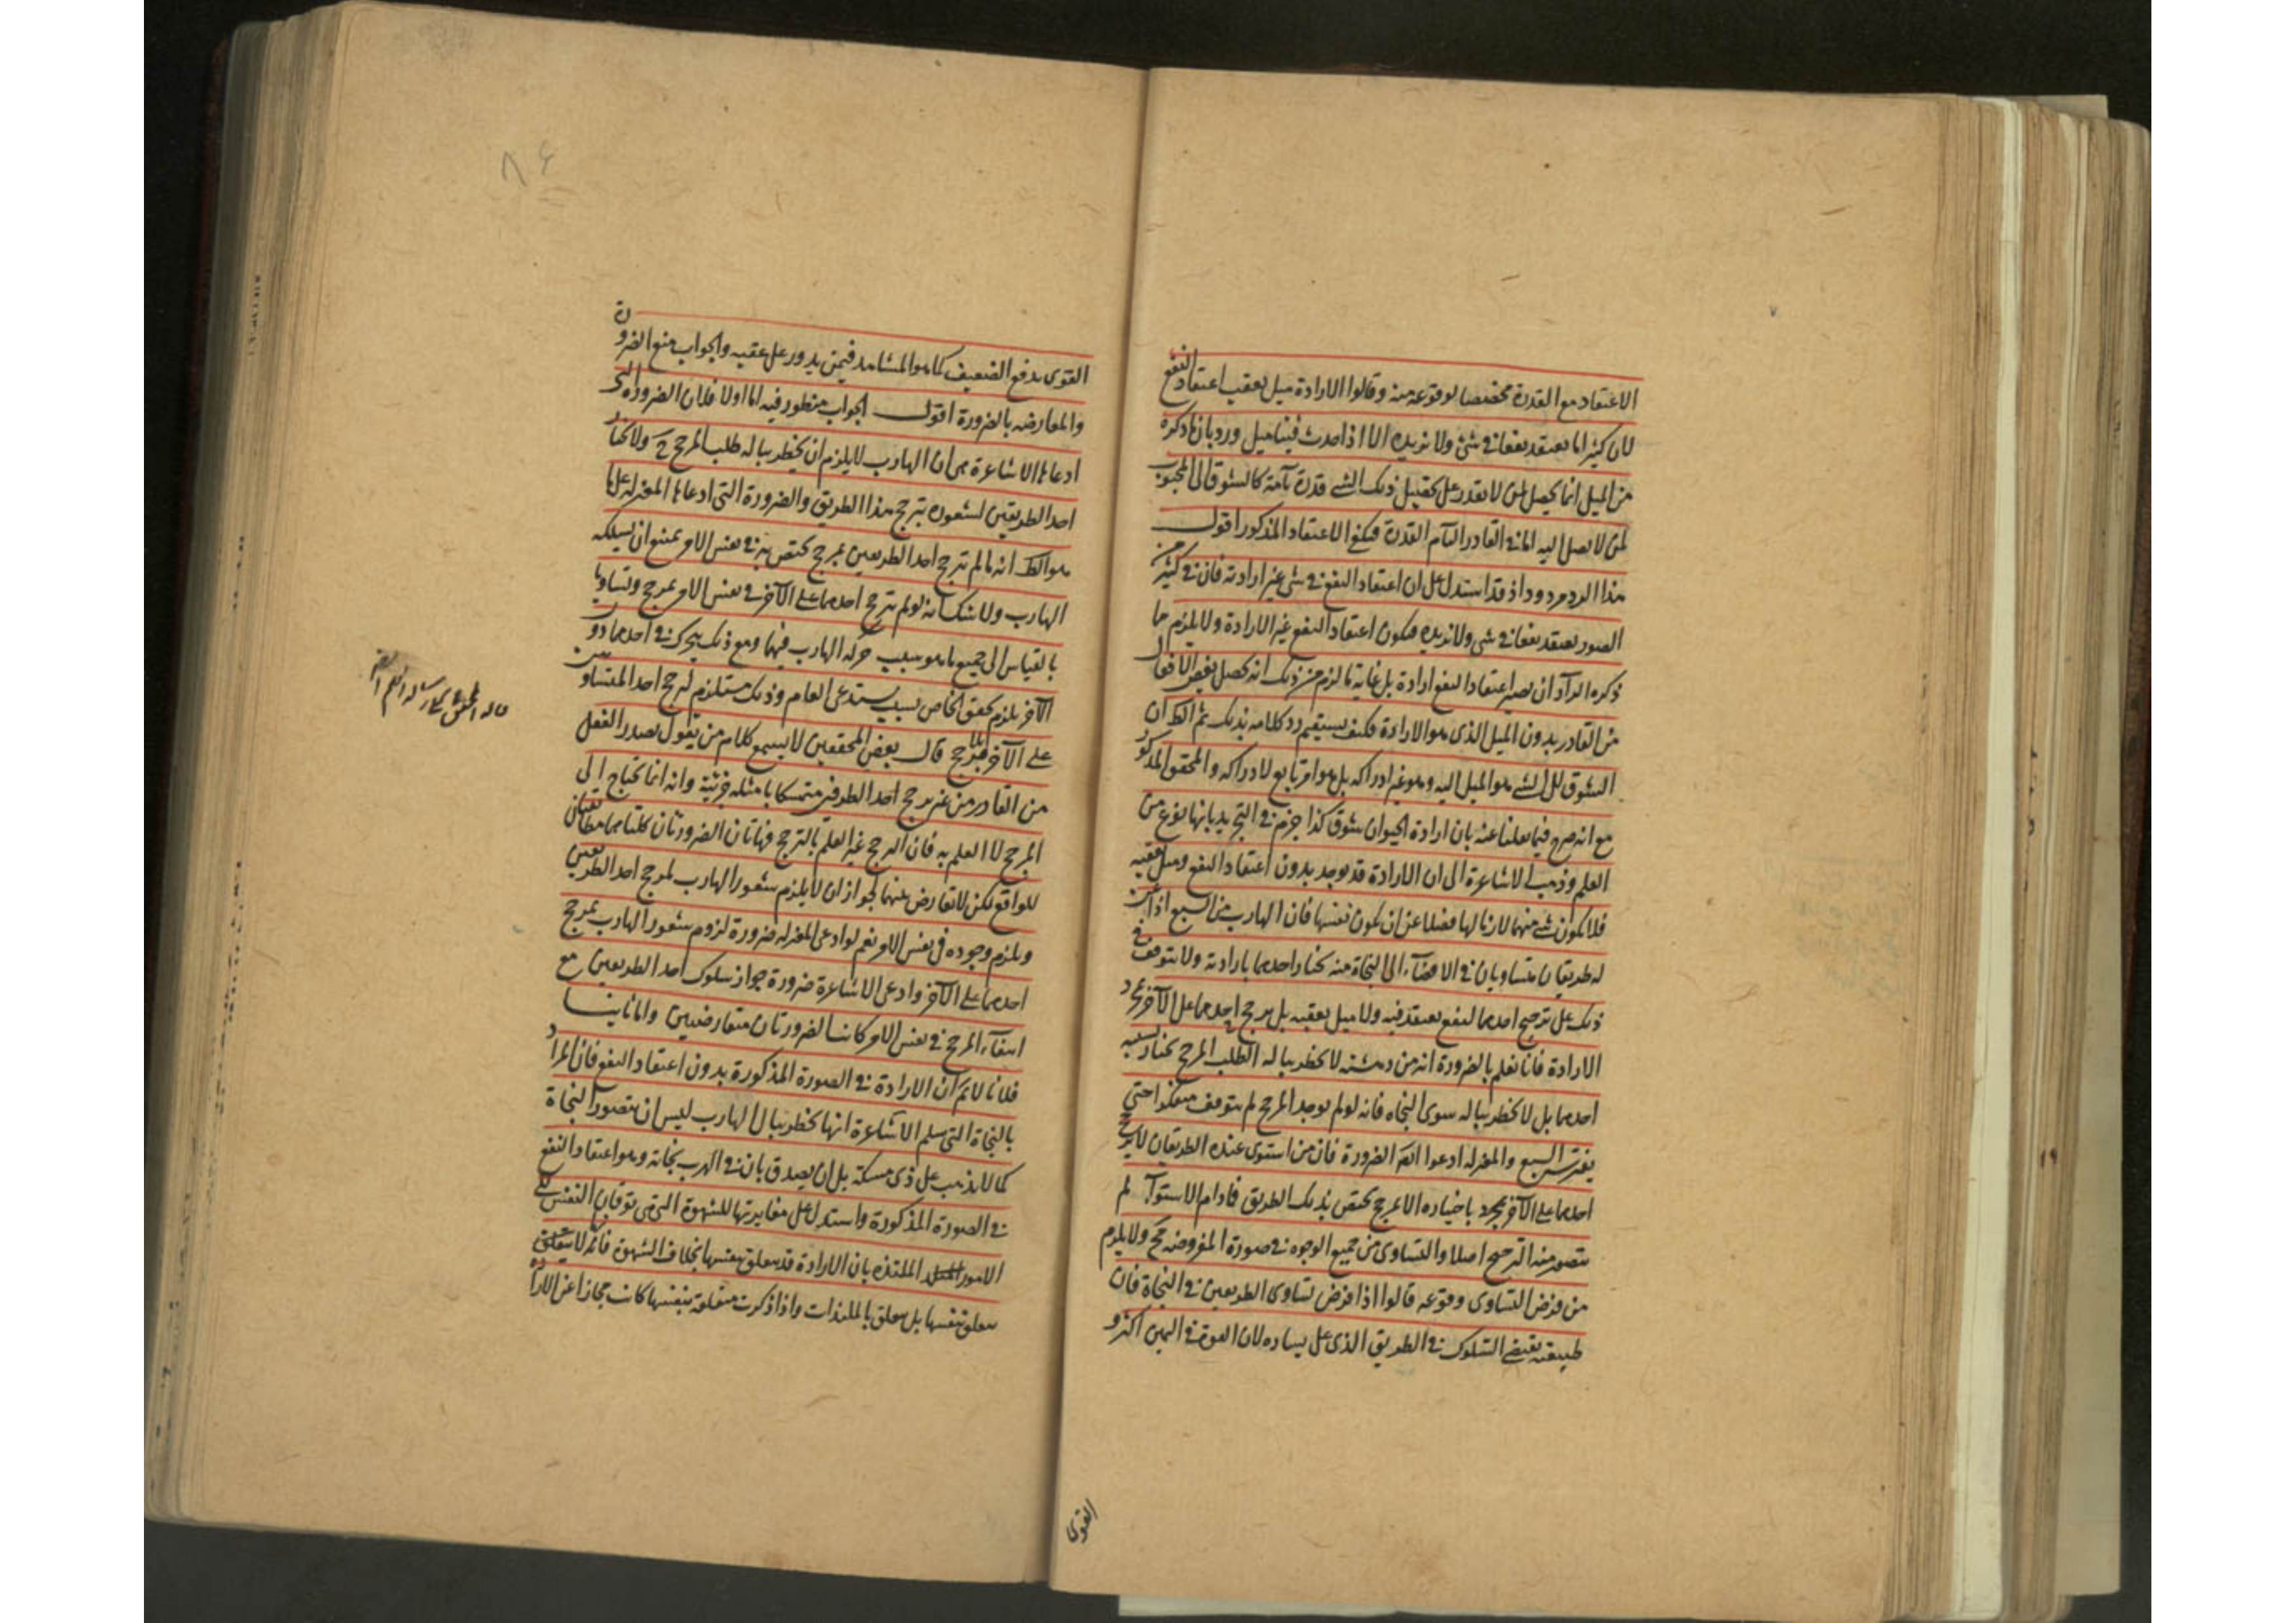 الاعتقاد مع القدرة مخصصا لوقوعه منه وقالوا الارادة ميل يعقب اعتقاد النفع
لان كثيرا ما نعتقد نفعا فى شئ ولا نريده الا اذا حدث فينا ميل ورد بان ما ذكره
من الميل انما يحصل لمن لا يقدر على تحصيل ذلك الشئ قدرة تامة كالشوق الى المحبوب
لمن لا يصل اليه اما فى القادر التام القدرة فيكفى الاعتقاد المذكور اقول
هذا الرد مردود اذ قد استدل على ان اعتقاد النفع فى شئ غير ارادته فان فى كثير من
الصور نعتقد نفعا فى شئ ولا نريده فيكون اعتقاد النفع غير الارادة ولا يلزم مما
ذكره الراد ان يصير اعتقاد النفع ارادة بل غاية ما لزم من ذلك انه يحصل بعض الافعال
من القادر بدون الميل الذى هو الارادة فكيف يستقيم رد كلامه بذلك ثم الظ ان
الشوق الى الشئ هو الميل اليه وهو غير ادراكه بل هو امر تابع لادراكه والمحقق المذكور
مع انه صرح فيما نقلنا عنه بان ارادة الحيوان شوق كذا جزم فى التجريد بانها نوع من
العلم وذهب الاشاعرة الى ان الارادة قد توجد بدون اعتقاد النفع وميل يعقبه
فلا يكون شئ منهما لازما لها فضلا عن ان يكون نفسها فان الهارب من السبع اذا عن
له طريقان متساويان فى الافضاء الى النجاة منه يختار احدهما بارادته ولا يتوقف فى
ذلك على ترجيح احدهما لنفع يعتقد فيه ولا ميل يعقبه بل يرجح احدهما على الآخر بمجرد
الارادة فانا نعلم بالضرورة انه من دهشته لا يخطر بباله الطلب المرجح يختار بسببه
احدهما بل لا يخطر بباله سوى النجاة فانه لو لم يوجد المرجح لم يتوقف متفكرا حتى
يفترسه السبع والمعتزلة ادعوا الضرورة فان من استوى عنده الطريقان لا يرجح
احدهما على الآخر بمجرد باختياره الا لمرجح يختص بذلك الطريق فما دام الاستواء لم
يتصور منه الترجيح اصلا والتساوى من جميع الوجوه فى صورة المفروضة مح ولا يلزم
من فرض التساوى وقوعه قالوا اذا فرض تساوى الطريقين فى النجاة فان
طبيعته يقتضى السلوك فى الطريق الذى على يساره لان القوة فى اليمين اكثر و
القوى
٨٤
القوى يدفع الضعيف كما هو المشاهد فيمن يدور على عقبه والجواب منع الضرورة
والمعارضة بالضرورة اقول الجواب منظور فيه اما اولا فلان الضرورة التى
ادعاها الاشاعرة هى ان الهارب لا يلزم ان يخطر بباله طلب المرجح ح ولا يختار
احد الطريقين لشعوره بترجح هذا الطريق والضرورة التى ادعاها المعتزلة على ما
هو الظ انه ما لم يترجح احد الطريقين بمرجح يختص به فى نفس الامر يمتنع ان يسلكه
الهارب ولا شك انه لو لم يترجح احدهما على الآخر فى نفس الامر بمرجح وتساويا
بالقياس الى جميع ما هو سبب حركة الهارب فيهما ومع ذلك يتحرك فى احدهما دون
الآخر يلزم تحقق الخاص بسبب يستدعى العام وذلك مستلزم لترجح احد المتساويين
على الآخر بلا مرجح قال بعض المحققين لا يسمع كلام من يقول بصدر الفعل
من القادر من غير مرجح احد الطرفين متمسكا بامثلة جزئية وانه انما يحتاج الى
المرجح لا العلم به فان الترجح غير العلم بالترجح فهاتان الضرورتان كلتاهما مطابقتان
للواقع لكن لا تعارض بينهما لجواز ان لا يلزم شعور الهارب لمرجح احد الطريقين
ويلزم وجوده فى نفس الامر نعم لو ادعى المعتزلة ضرورة لزوم شعور الهارب بمرجح
احدهما على الآخر وادعى الاشاعرة ضرورة جواز سلوك احد الطريقين مع
انتفاء المرجح فى نفس الامر كانت الضرورتان متعارضتين واما ثانيا
فلانا لانم ان الارادة فى الصورة المذكورة بدون اعتقاد النفع فان المراد
بالنجاة التى سلم الاشاعرة انها يخطر ببال الهارب ليس ان يتصور النجاة
كما لا يذهب على ذى مسكة بل ان يصدق بان فى الهرب نجاته وهو اعتقاد النفع
فى الصورة المذكورة واستدل على مغايرتها للشهوة التى هى توقان النفس الى
الامور الملتذة بان الارادة قد يتعلق بنفسها بخلاف الشهوة فانها لا يتعلق
يتعلق بنفسها بل يتعلق بالملذات واذا ذكرت متعلقة بنفسها كانت مجازا عن الارادة